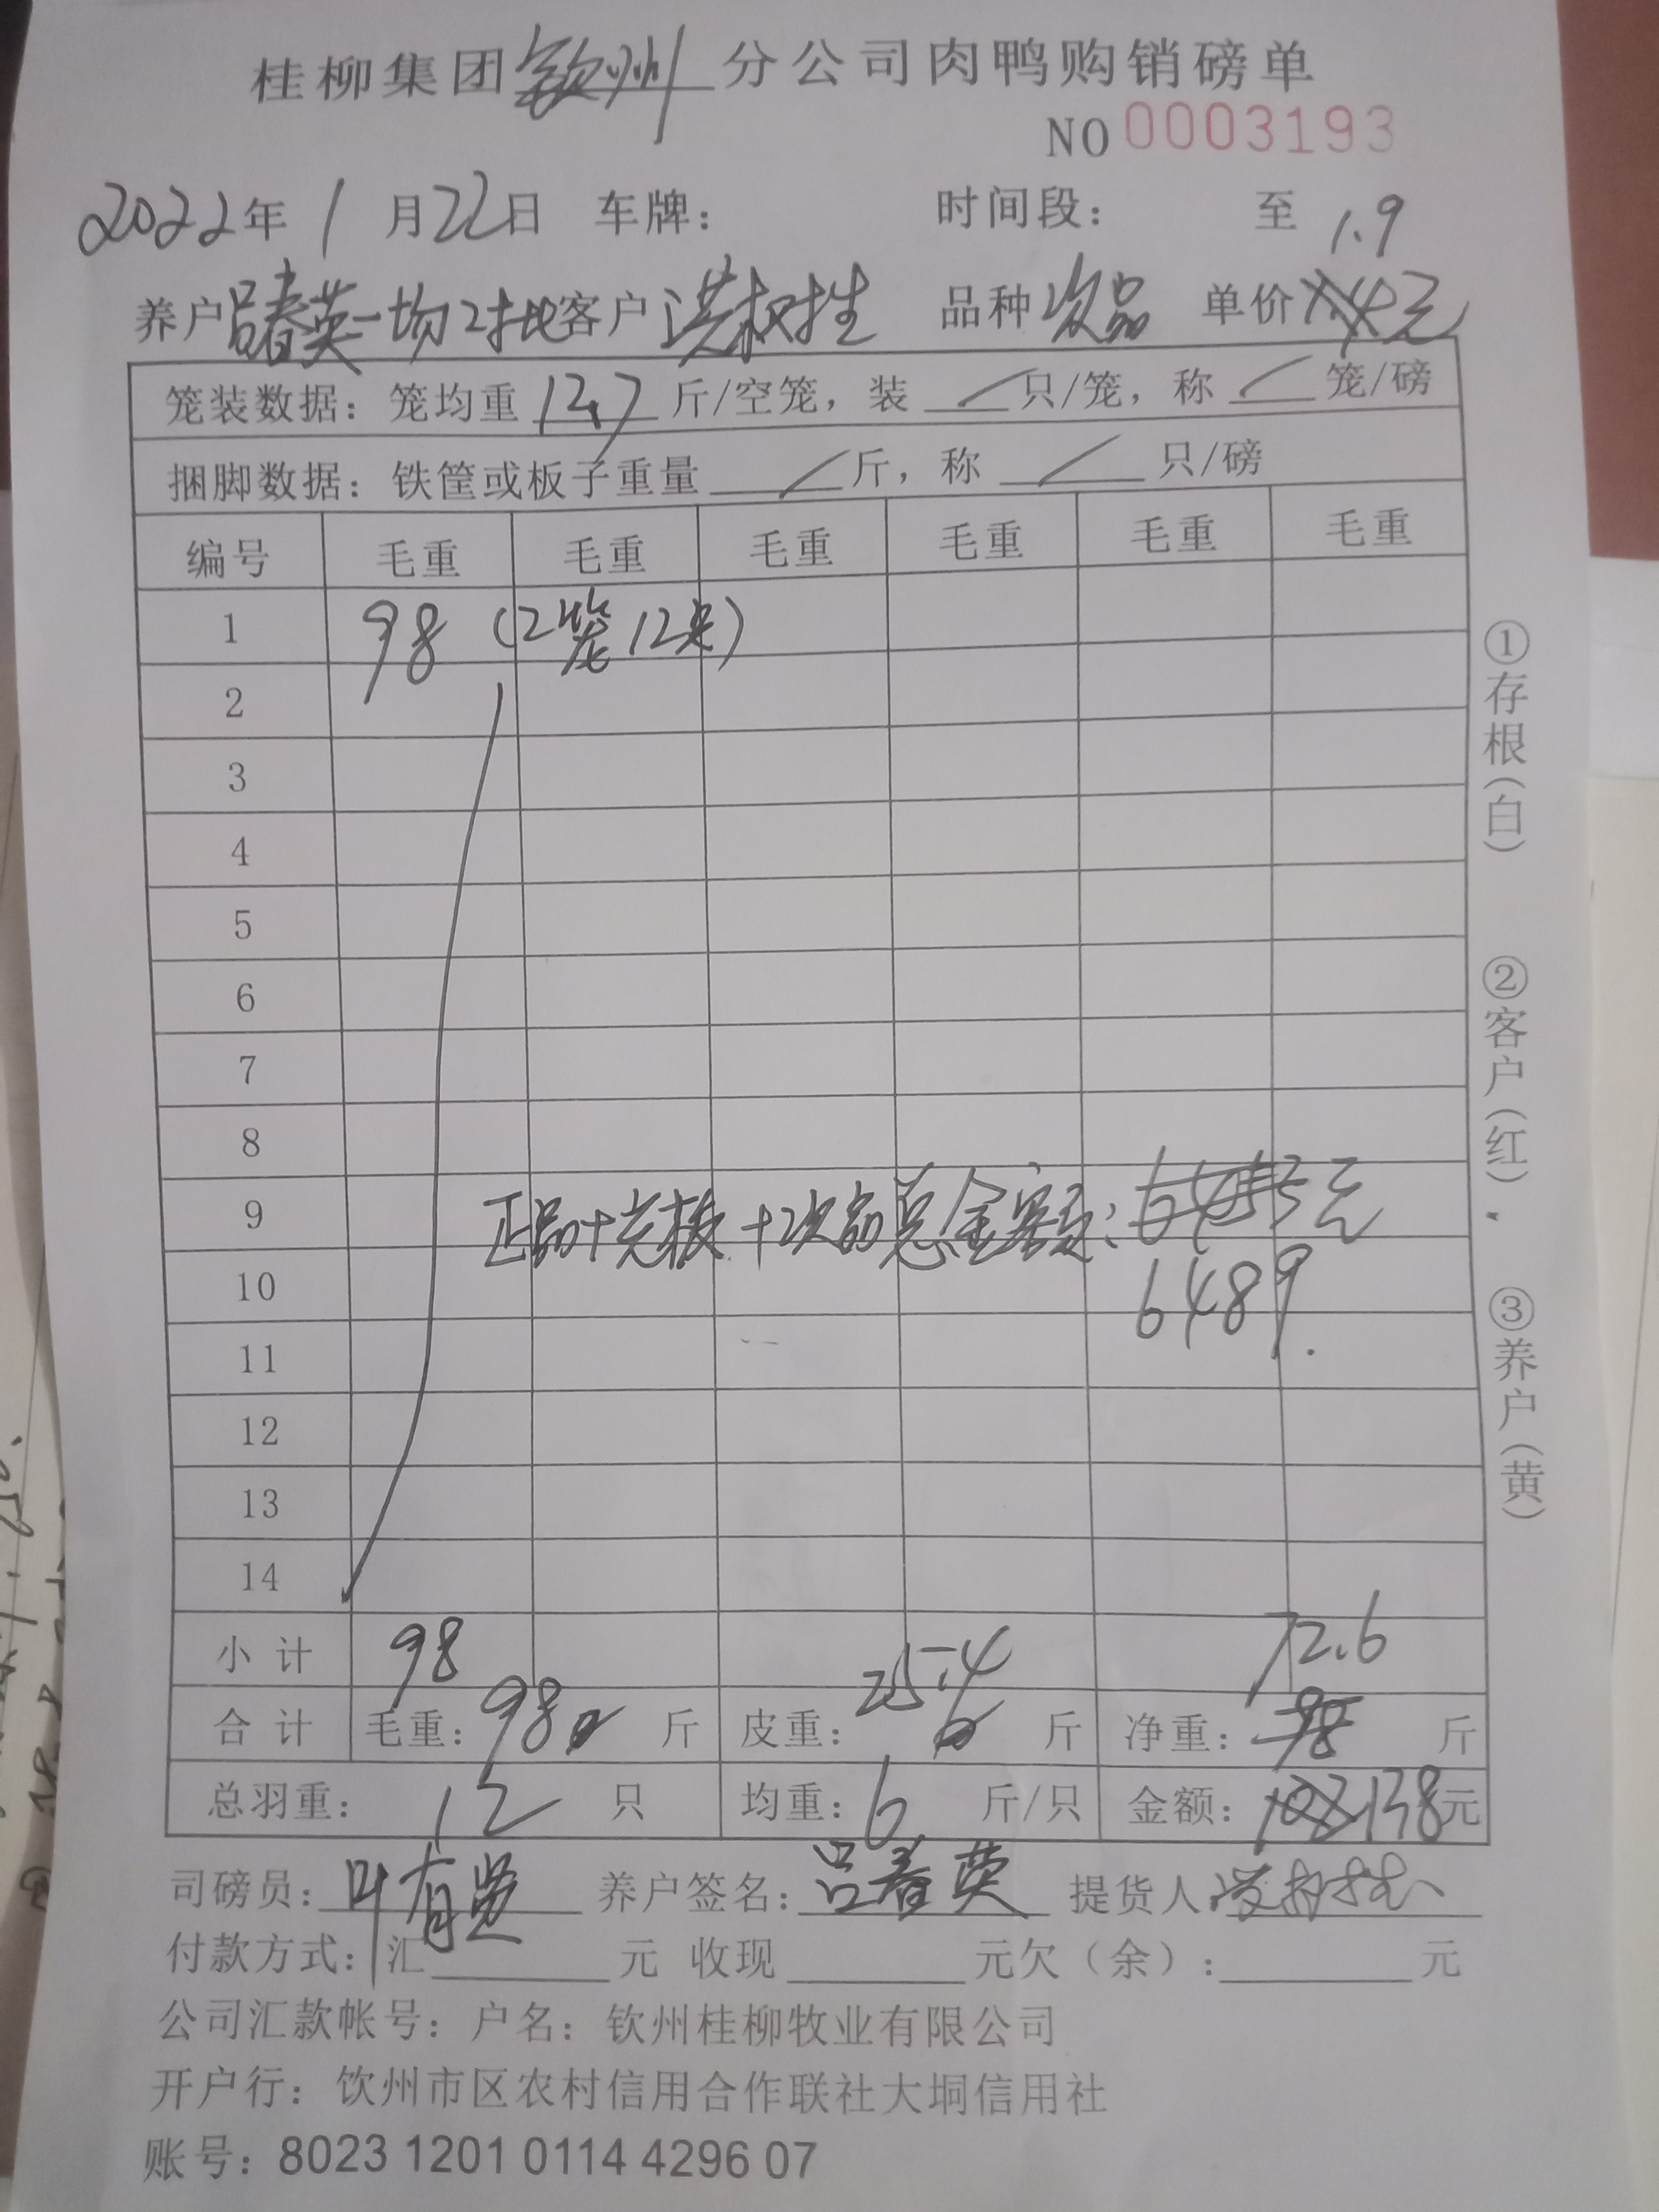 桂柳集团钦州分公司肉鸭购销磅单
NO 0003193
2022年1月22日 车牌： 时间段： 至 1.9
养户吕春英一场2批客户洪树生 品种次品 单价1.4元
笼装数据：笼均重12.7斤/空笼，装／只/笼，称／笼/磅
捆脚数据：铁筐或板子重量／斤，称／只/磅
编号 毛重 毛重 毛重 毛重 毛重 毛重
1 98（2笼12只）
2
3
4
5
6
7
8
9 正品+光板+次品总金额：元
10 6489.
11
12
13
14
小计 98 25.4 72.6
合计 毛重：98斤 皮重： 斤 净重：98斤
总羽重：12只 均重：6斤/只 金额：138元
司磅员：叶有贤 养户签名：吕春英 提货人：
付款方式：汇 元 收现 元欠（余）： 元
公司汇款帐号：户名：钦州桂柳牧业有限公司
开户行：钦州市区农村信用合作联社大垌信用社
账号：8023 1201 0114 4296 07
①存根（白）
②客户（红）
③养户（黄）